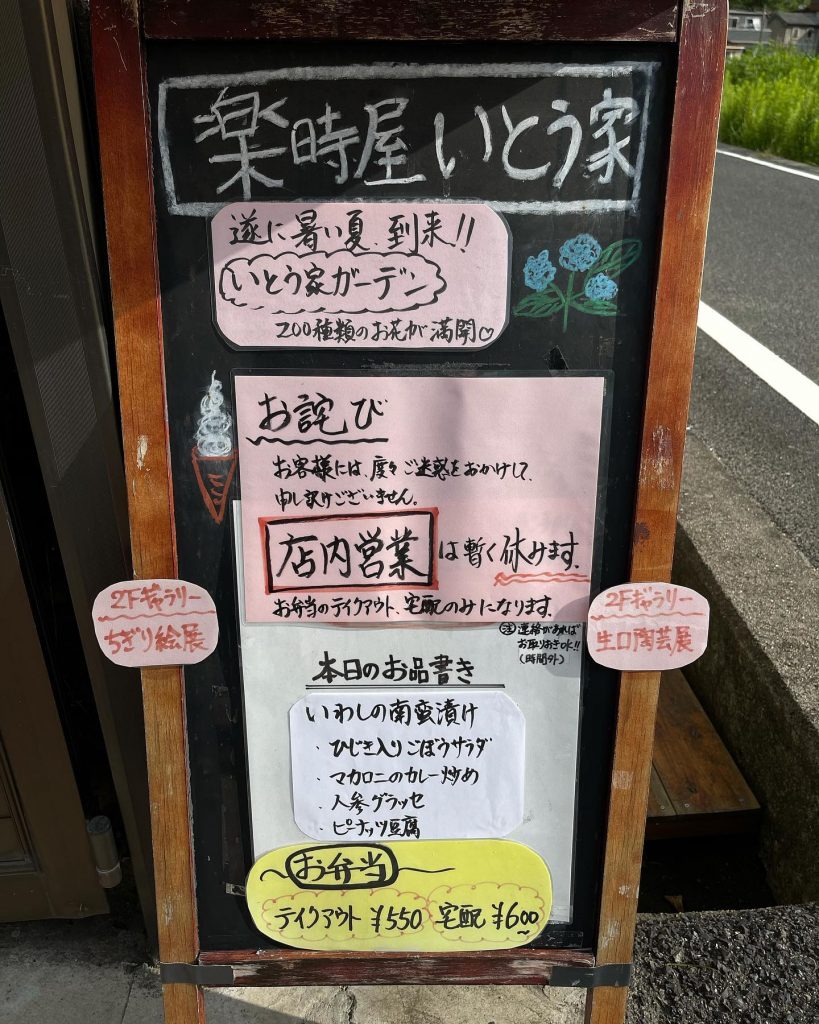 楽時屋いとう家
遂に暑い夏、到来!!
いとう家ガーデン
200種類のお花が満開♡
お詫び
お客様には、度々ご迷惑をおかけして、
申し訳けございません。
店内営業は暫く休みます。
お弁当のテイクアウト、宅配のみになります。
注 連絡があれば
お取りおきok!!
(時間外)
2Fギャラリー
ちぎり絵展
2Fギャラリー
生口陶芸展
本日のお品書き
いわしの南蛮漬け
・ひじき入りごぼうサラダ
・マカロニのカレー炒め
・人参グラッセ
・ピーナッツ豆腐
お弁当
テイクアウト ¥550 宅配 ¥600~